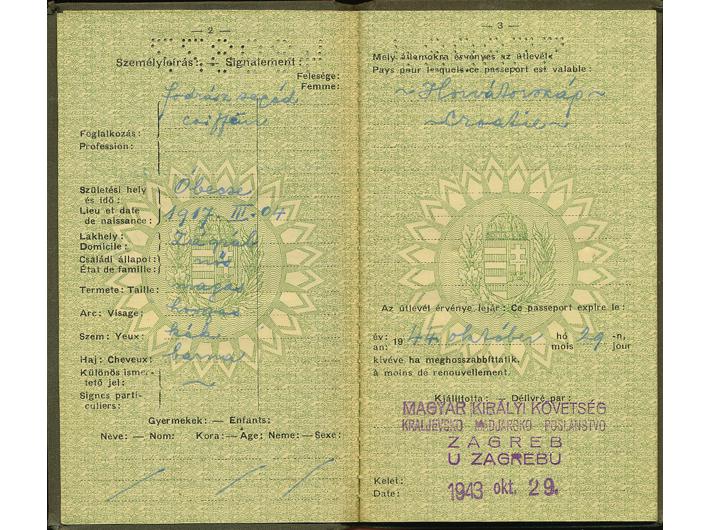 — 2 —
Személyleírás: — Signalement:
Felesége:
Femme:
fodrász segéd
coiffeur
Foglalkozás:
Profession:
Születési hely
és idő:
Lieu et date
de naissance:
Óbecse
1917. III. 04
Lakhely:
Domicile:
Zágráb
Családi állapot:
État de famille:
nős
Termete: Taille:
magas
Arc: Visage:
hosszas
Szem: Yeux:
kék
Haj: Cheveux:
barna
Különös ismer-
tető jel:
Signes parti-
culiers:
Gyermekek: — Enfants:
Neve: — Nom: Kora: — Âge: Neme: — Sexe:
— 3 —
Mely államokra érvényes az útlevél:
Pays pour lesquels ce passeport est valable:
~Horvátország~
~Croatie~
Az útlevél érvénye lejár: Ce passeport expire le:
év: 1944 október hó 29 -n,
an: mois jour
kivéve ha meghosszabbíttatik.
à moins de renouvellement.
Kiállította: Délivré par:
MAGYAR KIRÁLYI KÖVETSÉG
KRALJEVSKO MADJARSKO POSLANSTVO
ZAGREB
U ZAGREBU
Kelet:
Date:
1943 okt. 29.